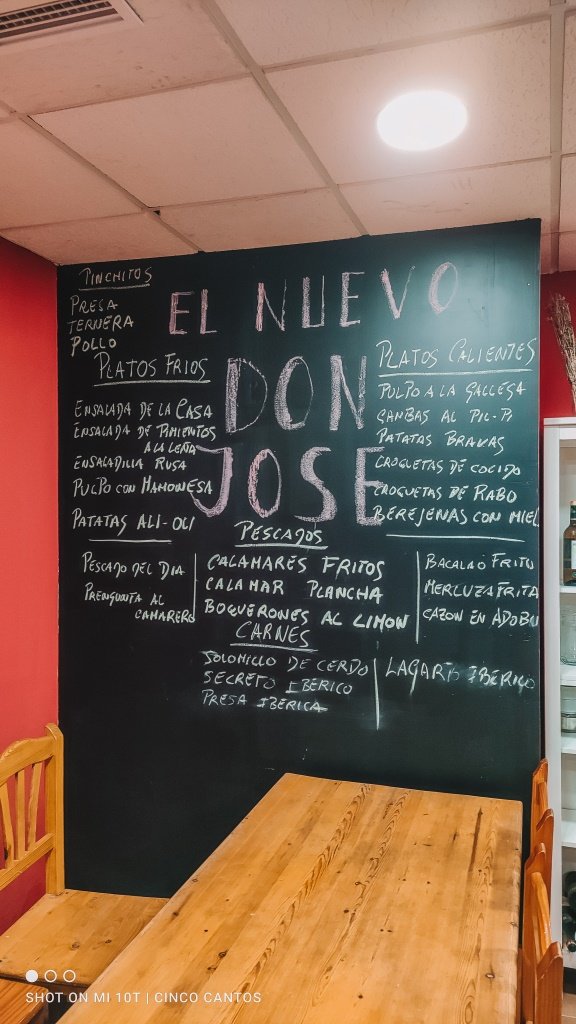 EL NUEVO
DON
JOSE
PINCHITOS
PRESA
TERNERA
POLLO
PLATOS FRIOS
ENSALADA DE LA CASA
ENSALADA DE PIMIENTOS
A LA LEÑA
ENSALADILLA RUSA
PULPO CON MAHONESA
PATATAS ALI-OLI
PLATOS CALIENTES
PULPO A LA GALLEGA
GANBAS AL PIL-PI
PATATAS BRAVAS
CROQUETAS DE COCIDO
CROQUETAS DE RABO
BEREJENAS CON MIEL
PESCADOS
PESCADO DEL DIA
PREGUNTA AL
CAMARERO
CALAMARES FRITOS
CALAMAR PLANCHA
BOQUERONES AL LIMON
BACALAO FRITO
MERLUZA FRITA
CAZON EN ADOBO
CARNES
SOLOMILLO DE CERDO
SECRETO IBERICO
PRESA IBERICA
LAGARTO IBÉRICO
SHOT ON MI 10T | CINCO CANTOS